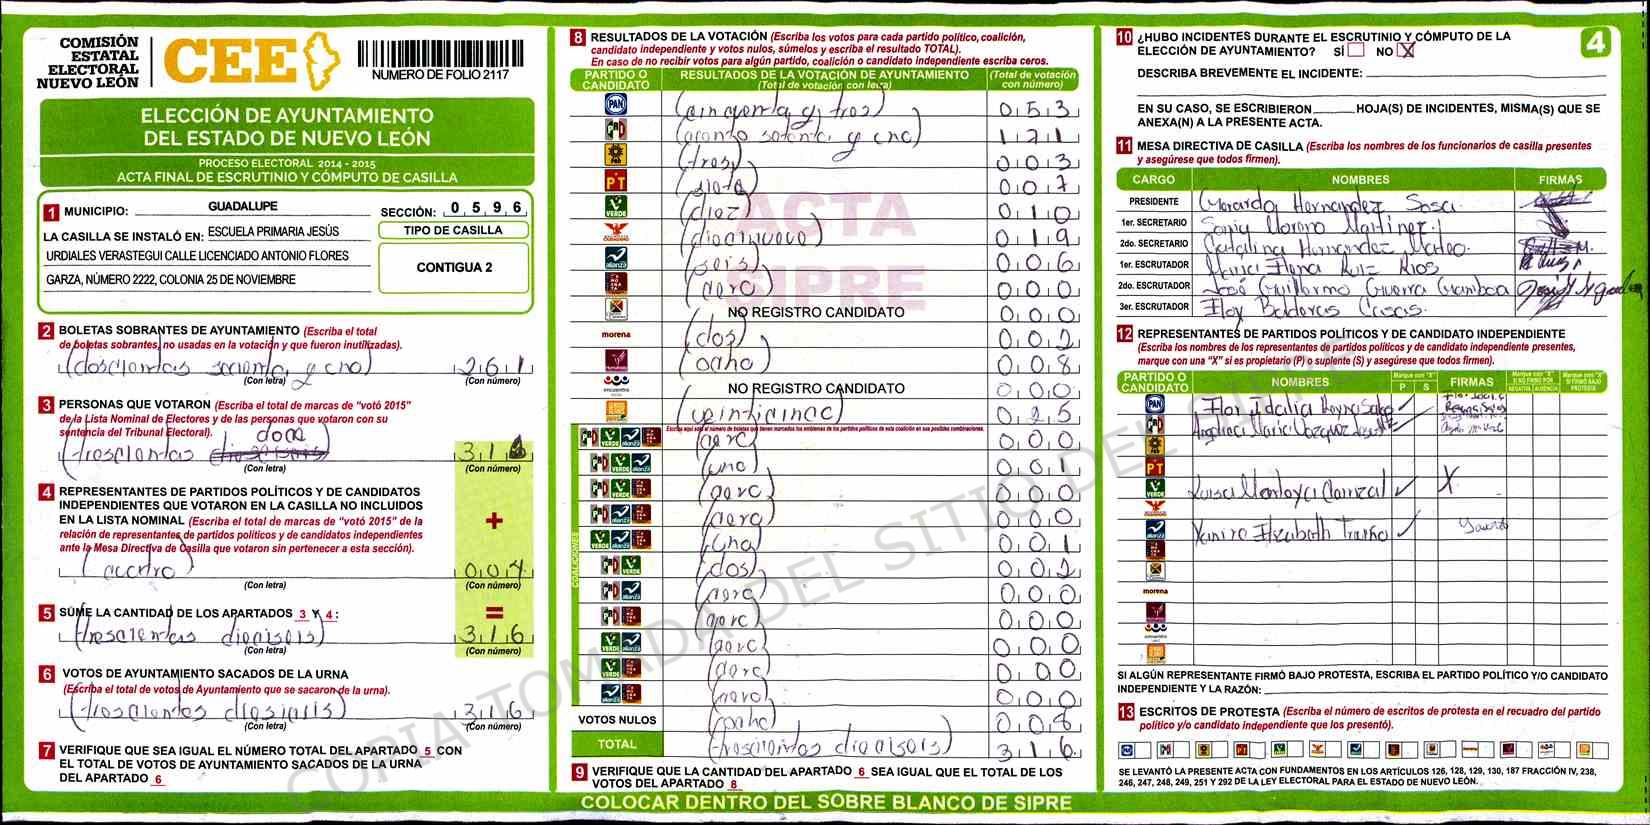 COMISIÓN
ESTATAL
ELECTORAL
NUEVO LEÓN
CEE
NUMERO DE FOLIO 2117
ELECCIÓN DE AYUNTAMIENTO
DEL ESTADO DE NUEVO LEÓN
PROCESO ELECTORAL 2014 - 2015
ACTA FINAL DE ESCRUTINIO Y CÓMPUTO DE CASILLA
1 MUNICIPIO: GUADALUPE SECCIÓN: 0 5 9 6
LA CASILLA SE INSTALÓ EN: ESCUELA PRIMARIA JESÚS
URDIALES VERASTEGUI CALLE LICENCIADO ANTONIO FLORES
GARZA, NÚMERO 2222, COLONIA 25 DE NOVIEMBRE
TIPO DE CASILLA
CONTIGUA 2
2 BOLETAS SOBRANTES DE AYUNTAMIENTO (Escriba el total
de boletas sobrantes, no usadas en la votación y que fueron inutilizadas).
261
(Con letra) (Con número)
3 PERSONAS QUE VOTARON (Escriba el total de marcas de "votó 2015"
de la Lista Nominal de Electores y de las personas que votaron con su
sentencia del Tribunal Electoral).
(Con letra) (Con número)
4 REPRESENTANTES DE PARTIDOS POLÍTICOS Y DE CANDIDATOS
INDEPENDIENTES QUE VOTARON EN LA CASILLA NO INCLUIDOS
EN LA LISTA NOMINAL (Escriba el total de marcas de "votó 2015" de la
relación de representantes de partidos políticos y de candidatos independientes
ante la Mesa Directiva de Casilla que votaron sin pertenecer a esta sección).
+
004
(Con letra) (Con número)
5 SUME LA CANTIDAD DE LOS APARTADOS 3 Y 4:
=
316
(Con letra) (Con número)
6 VOTOS DE AYUNTAMIENTO SACADOS DE LA URNA
(Escriba el total de votos de Ayuntamiento que se sacaron de la urna).
316
(Con letra) (Con número)
7 VERIFIQUE QUE SEA IGUAL EL NÚMERO TOTAL DEL APARTADO 5 CON
EL TOTAL DE VOTOS DE AYUNTAMIENTO SACADOS DE LA URNA
DEL APARTADO 6
8 RESULTADOS DE LA VOTACIÓN (Escriba los votos para cada partido político, coalición,
candidato independiente y votos nulos, súmelos y escriba el resultado TOTAL).
En caso de no recibir votos para algún partido, coalición o candidato independiente escriba ceros.
PARTIDO O CANDIDATO RESULTADOS DE LA VOTACIÓN DE AYUNTAMIENTO (Total de votación con letra) (Total de votación con número)
PAN (cincuenta y tres) 053
171
(tres) 003
PT (siete) 007
VERDE (diez) 010
(diecinueve) 019
alianza (seis) 006
(cero) 000
NO REGISTRO CANDIDATO 000
morena (dos) 002
(ocho) 008
NO REGISTRO CANDIDATO 000
025
Escriba aquí solo el número de boletas que tienen marcados los emblemas de los partidos políticos de esta coalición en sus posibles combinaciones.
COALICIONES
(cero) 000
(uno) 001
(cero) 000
(cero) 000
(uno) 001
(dos) 002
(cero) 000
(cero) 000
(cero) 000
(cero) 000
(cero) 000
VOTOS NULOS (ocho) 008
TOTAL 316
ACTA
SIPRE
9 VERIFIQUE QUE LA CANTIDAD DEL APARTADO 6 SEA IGUAL QUE EL TOTAL DE LOS
VOTOS DEL APARTADO 8
COLOCAR DENTRO DEL SOBRE BLANCO DE SIPRE
10 ¿HUBO INCIDENTES DURANTE EL ESCRUTINIO Y CÓMPUTO DE LA
ELECCIÓN DE AYUNTAMIENTO? SÍ NO X
4
DESCRIBA BREVEMENTE EL INCIDENTE:
EN SU CASO, SE ESCRIBIERON HOJA(S) DE INCIDENTES, MISMA(S) QUE SE
ANEXA(N) A LA PRESENTE ACTA.
11 MESA DIRECTIVA DE CASILLA (Escriba los nombres de los funcionarios de casilla presentes
y asegúrese que todos firmen).
CARGO NOMBRES FIRMAS
PRESIDENTE Gerardo Hernandez Sosa
1er. SECRETARIO Moreno Martinez
2do. SECRETARIO Catalina Hernandez Mateo
1er. ESCRUTADOR Maria Elena Ruiz Rios
2do. ESCRUTADOR José Guillermo Guerra Gamboa
3er. ESCRUTADOR Eloy Balderas Casas
12 REPRESENTANTES DE PARTIDOS POLÍTICOS Y DE CANDIDATO INDEPENDIENTE
(Escriba los nombres de los representantes de partidos políticos y de candidato independiente presentes,
marque con una "X" si es propietario (P) o suplente (S) y asegúrese que todos firmen).
PARTIDO O CANDIDATO NOMBRES Marque con "X" P S FIRMAS
PAN Flor Idalia Reyna
Angelica Maria Vazquez
PT
VERDE Luisa Montoya X
Yanira Elizabeth
morena
SI ALGÚN REPRESENTANTE FIRMÓ BAJO PROTESTA, ESCRIBA EL PARTIDO POLÍTICO Y/O CANDIDATO
INDEPENDIENTE Y LA RAZÓN:
13 ESCRITOS DE PROTESTA (Escriba el número de escritos de protesta en el recuadro del partido
político y/o candidato independiente que los presentó).
SE LEVANTÓ LA PRESENTE ACTA CON FUNDAMENTOS EN LOS ARTÍCULOS 126, 128, 129, 130, 187 FRACCIÓN IV, 238,
246, 247, 248, 249, 251 Y 292 DE LA LEY ELECTORAL PARA EL ESTADO DE NUEVO LEÓN.
COPIA TOMADA DEL SITIO DEL SIPRE